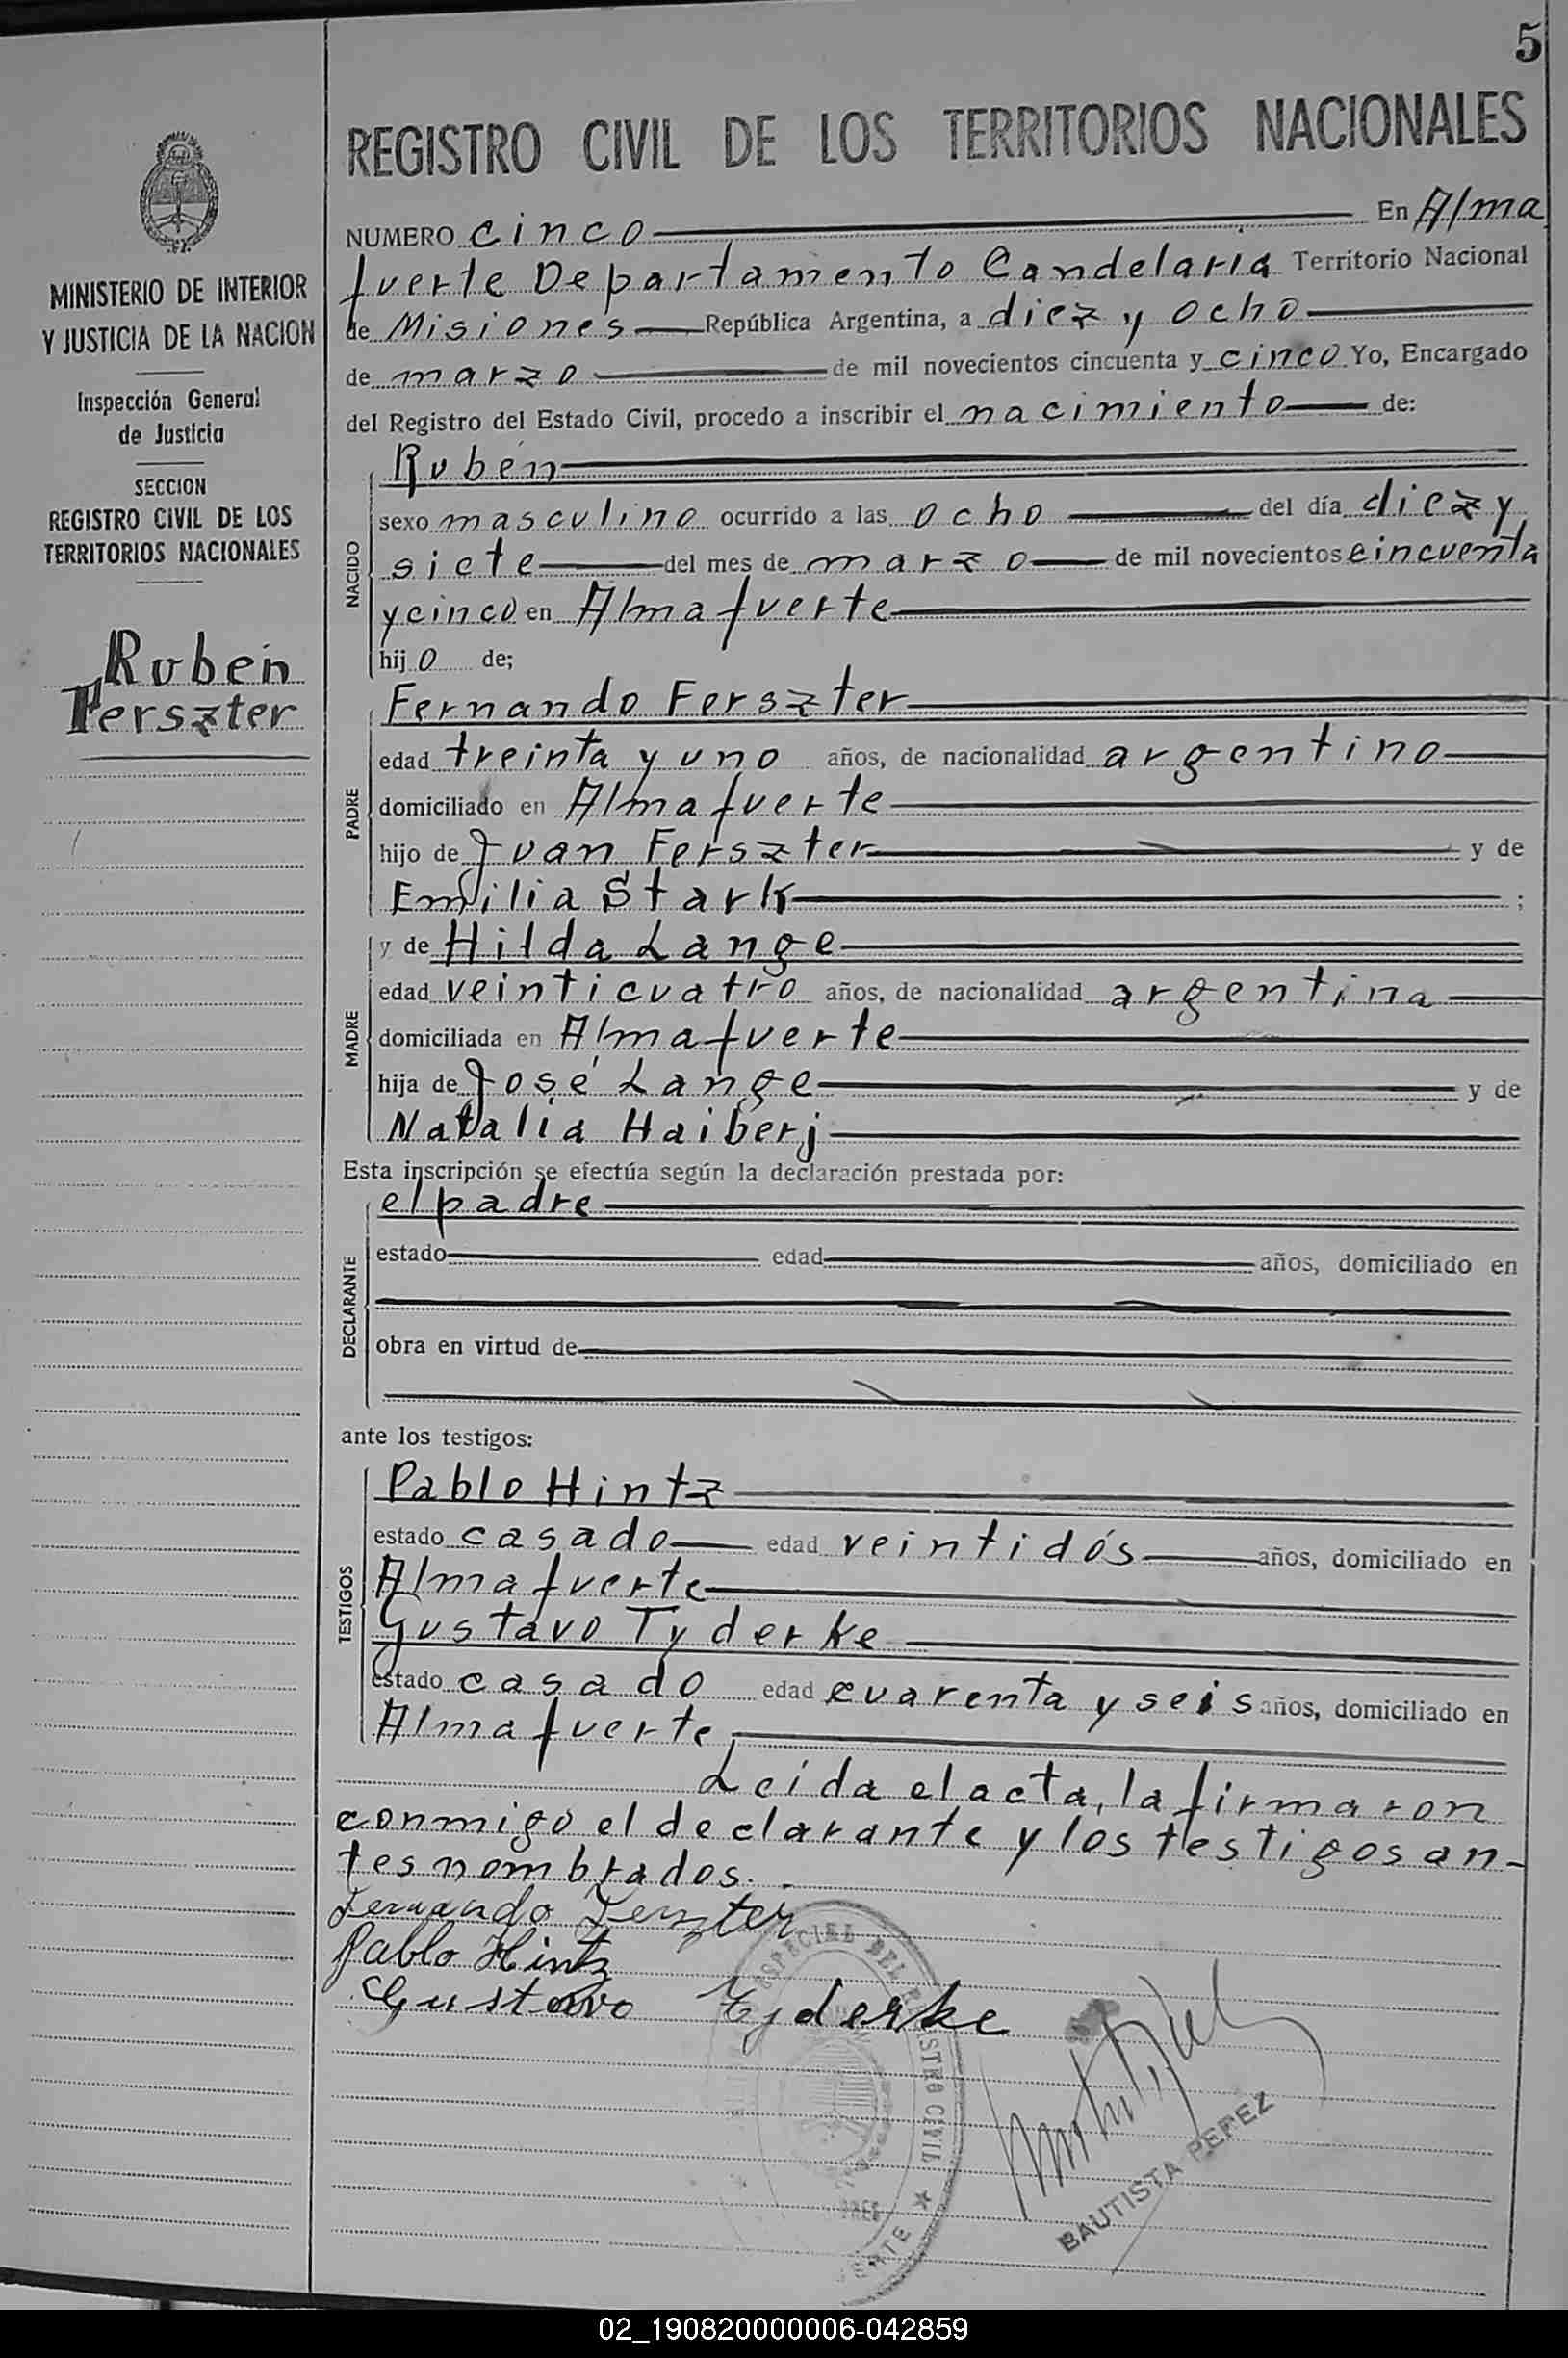 5
REGISTRO CIVIL DE LOS TERRITORIOS NACIONALES
MINISTERIO DE INTERIOR
Y JUSTICIA DE LA NACION
Inspección General
de Justicia
SECCION
REGISTRO CIVIL DE LOS
TERRITORIOS NACIONALES
Ruben
Ferszter
NUMERO cinco En Alma
fuerte Departamento Candelaria Territorio Nacional
de Misiones República Argentina, a diez y ocho
de marzo de mil novecientos cincuenta y cinco Yo, Encargado
del Registro del Estado Civil, procedo a inscribir el nacimiento de:
NACIDO
Rubén
sexo masculino ocurrido a las ocho del día diez y
siete del mes de marzo de mil novecientos cincuenta
y cinco en Almafuerte
hijo de;
PADRE
Fernando Ferszter
edad treinta y uno años, de nacionalidad argentino
domiciliado en Almafuerte
hijo de Juan Ferszter y de
Emilia Stark ;
MADRE
y de Hilda Lange
edad veinticuatro años, de nacionalidad argentina
domiciliada en Almafuerte
hija de José Lange y de
Natalia Haiberj
Esta inscripción se efectúa según la declaración prestada por:
DECLARANTE
el padre
estado edad años, domiciliado en
obra en virtud de
ante los testigos:
TESTIGOS
Pablo Hintz
estado casado edad veintidós años, domiciliado en
Almafuerte
Gustavo Tyderke
estado casado edad cuarenta y seis años, domiciliado en
Almafuerte
Leida el acta, la firmaron
conmigo el declarante y los testigos an-
tes nombrados.
Fernando Ferszter
Pablo Hintz
Gustavo Tyderke
ESPECIAL DEL
CIVIL
BAUTISTA PEREZ
02_190820000006-042859